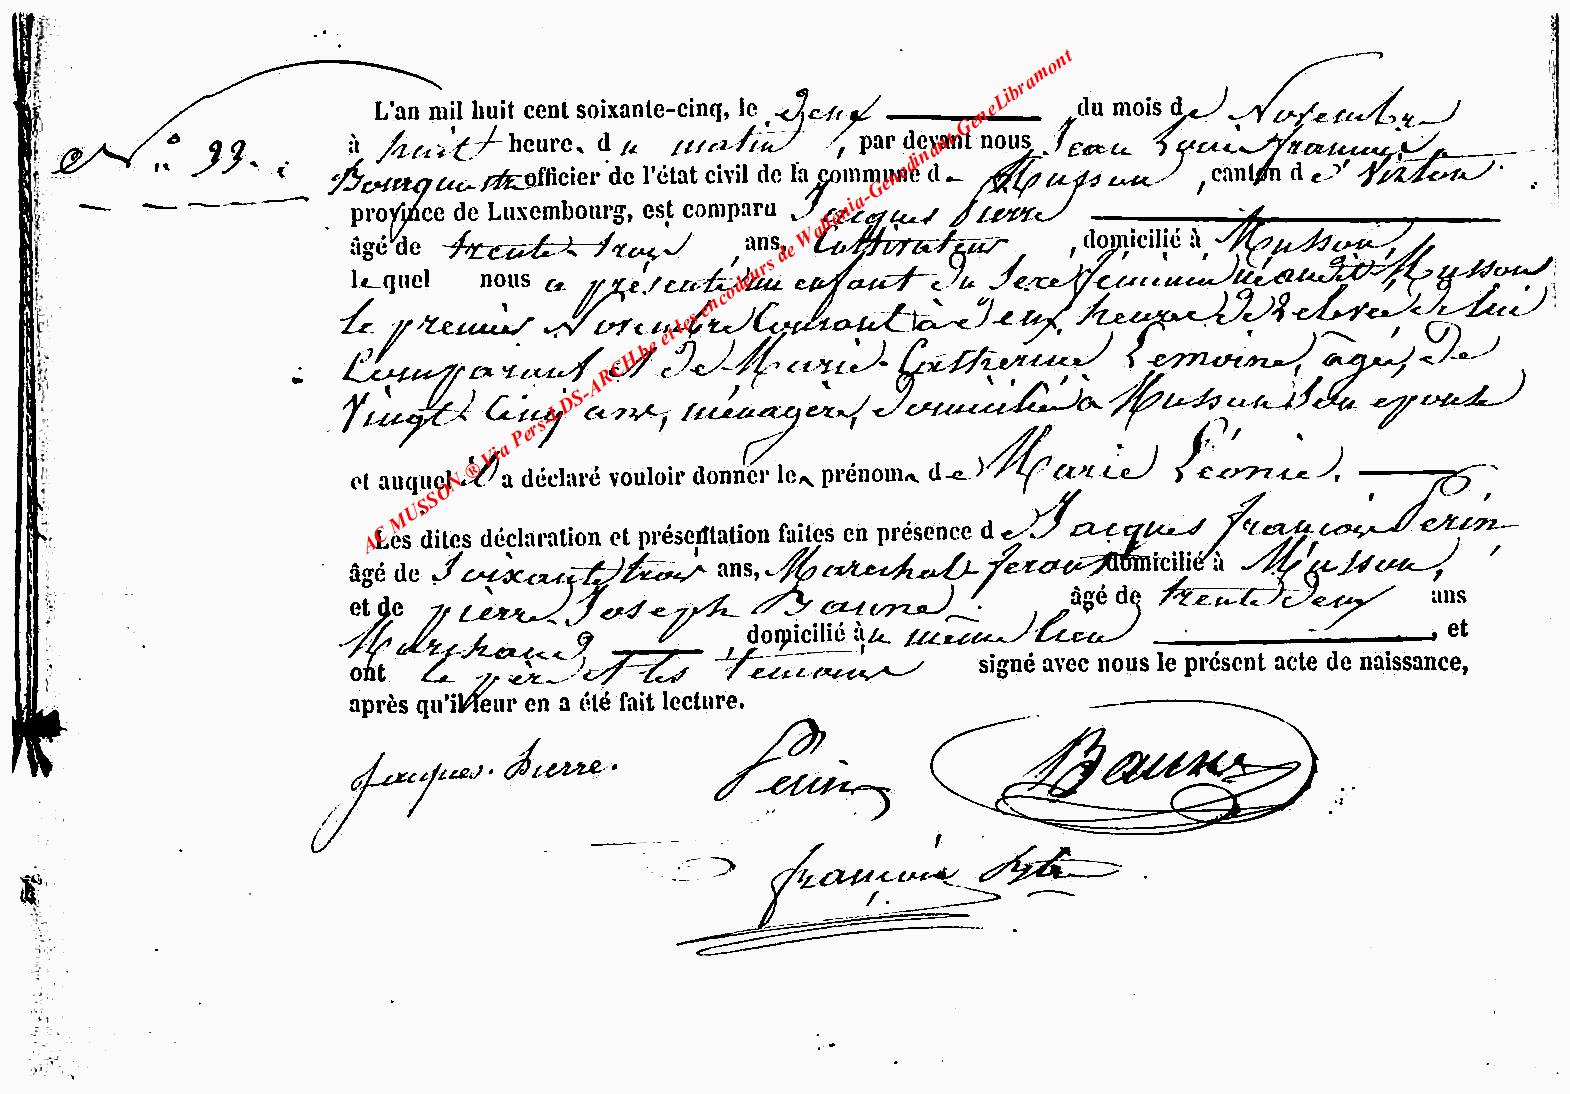 N.° 99.
L'an mil huit cent soixante-cinq, le deux du mois de Novembre
à huit heure. du matin, par devant nous Jean Louis françois
officier de l'état civil de la commune de Musson, canton de Virton
province de Luxembourg, est comparu Jacques Pierre
âgé de trente-trois ans, Cultivateur, domicilié à Musson,
lequel nous a présenté un enfant du Sexe féminin né audit Musson
le premier Novembre Courant à deux heures de relevée de lui
Comparant et de Marie-Catherine Lemoine, agée, de
Vingt-Cinq ans, ménagère, domiciliée à Musson Son epouse
et auquel il a déclaré vouloir donner les prénoms de Marie Léonie.
Les dites déclaration et présentation faites en présence de Jacques françois Perin
âgé de Soixante trois ans, Marechal-feront domicilié à Musson,
et de pierre Joseph Baune âgé de trente deux ans
Marchand, domicilié au même lieu, et
ont le père et les temoins signé avec nous le présent acte de naissance,
après qu'il leur en a été fait lecture.
Jacques. Pierre. Perin Baune
françois
AC MUSSON ® Via Pers LDS-ARCH.be et les encodeurs de Wallonia-Genedinant-GeneLibramont